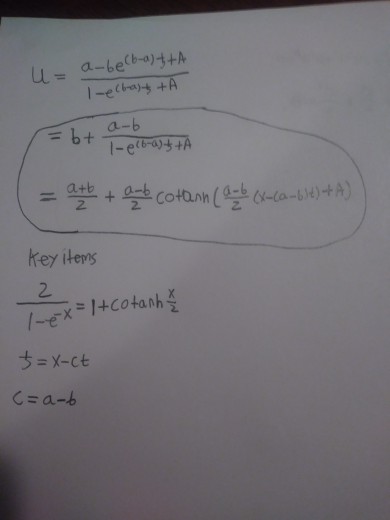 U = (a-be^((b-a)ξ+A))/(1-e^((b-a)ξ+A))
= b + (a-b)/(1-e^((b-a)ξ+A))
= (a+b)/2 + (a-b)/2 cotanh((a-b)/2 (x-(a-b)t)+A)
Key items
2/(1-e^-x) = 1+cotanh x/2
ξ = x-ct
C = a-b